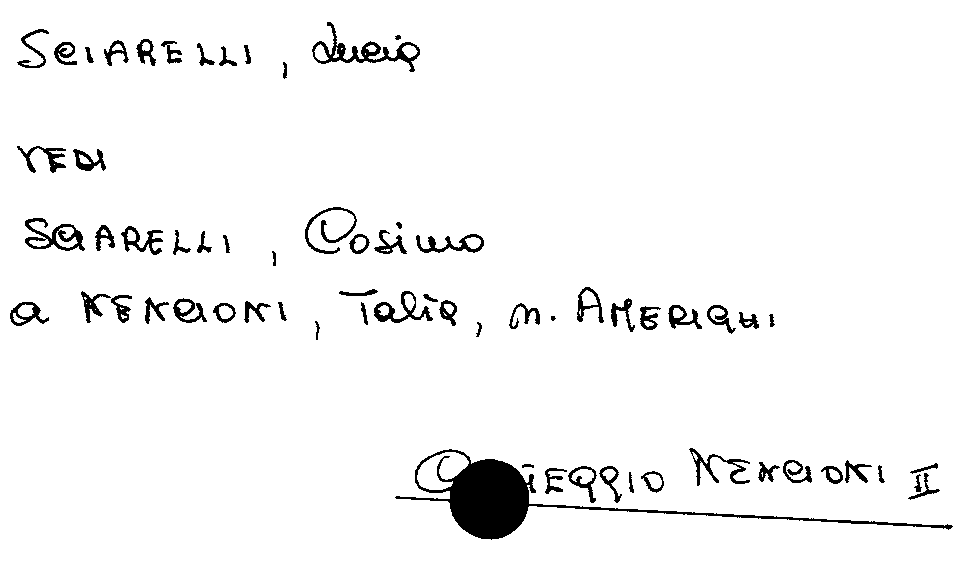 SCIARELLI, Lucia
VEDI
SCIARELLI, Cosimo
a NENCIONI, Talia, n. AMERIGHI
NENCIONI II